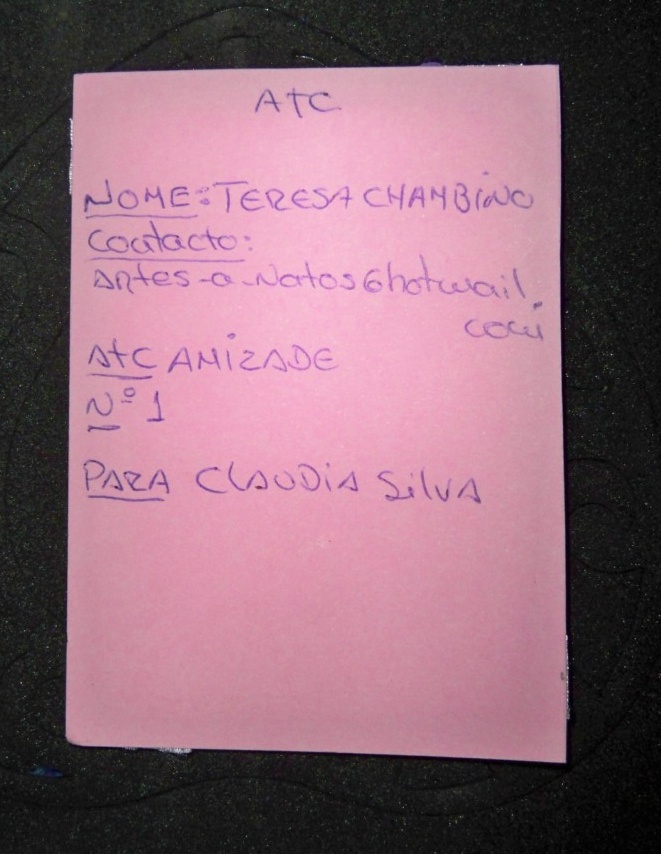 ATC
NOME: TERESA CHAMBINO
Contacto:
Artes-a-Natos@hotmail.
com
ATC AMIZADE
Nº 1
PARA CLAUDIA SILVA